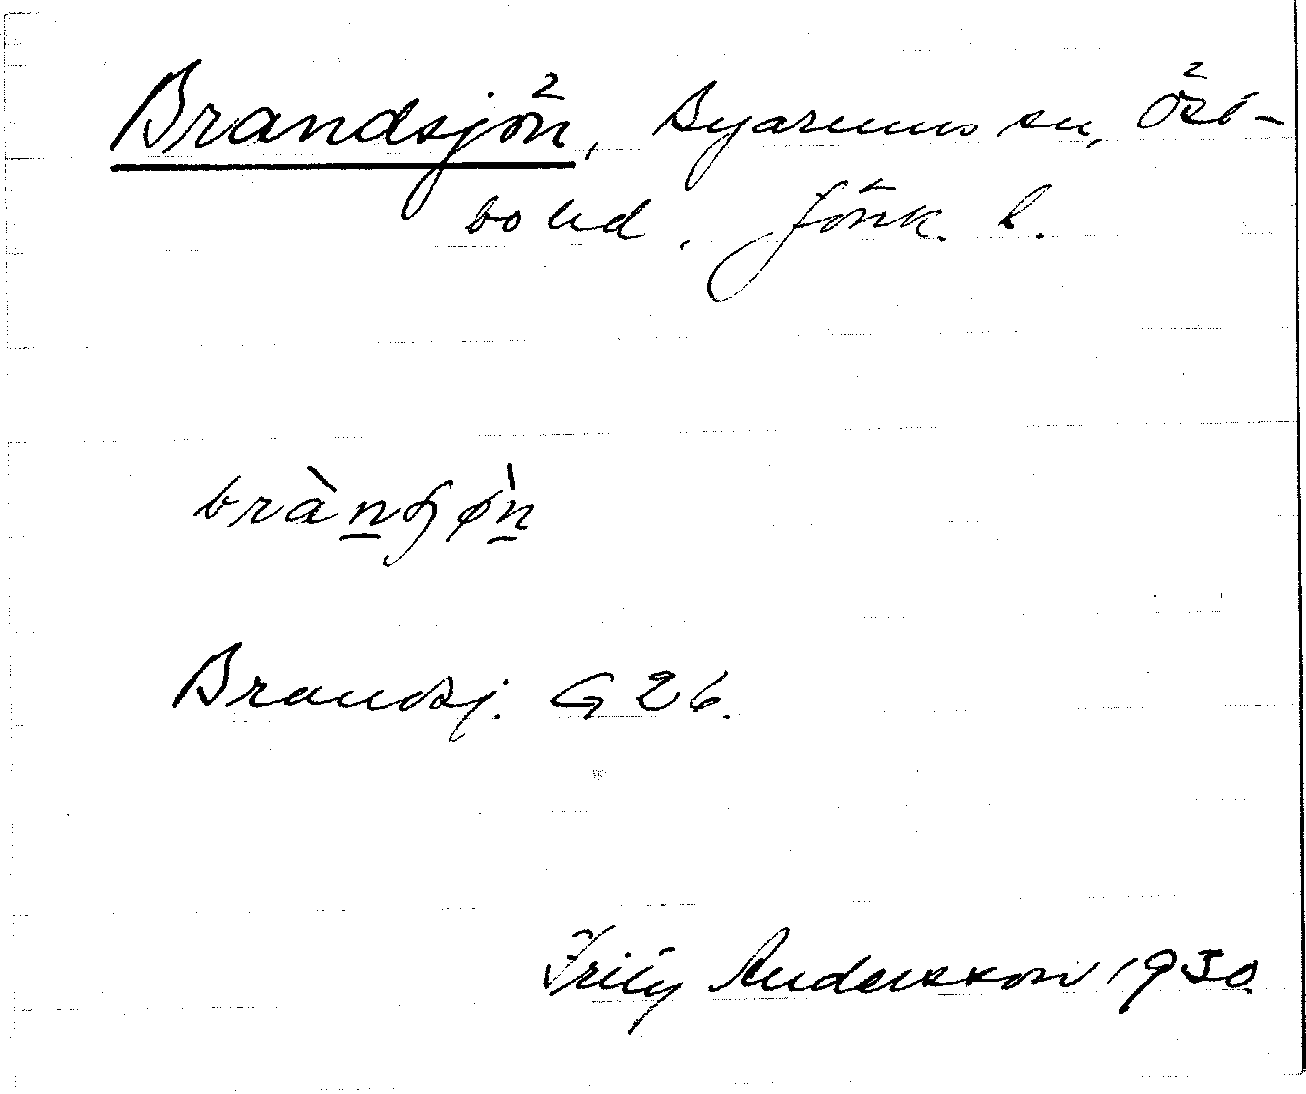 Brandsjön, Byarums sn, Öst-
bo hd. Jönk. l.
bràn̠ʃø̀n̠
Brandsj. G 26.
Frity Andersson 1930